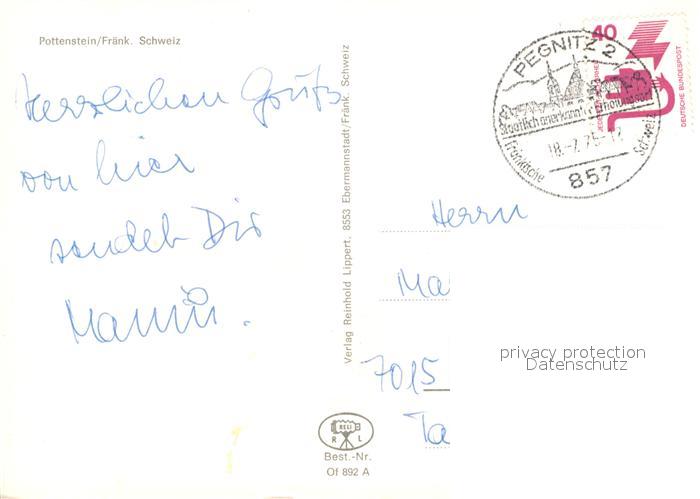 Pottenstein/Fränk. Schweiz
Herzlichen Gruß
von hier
sendet Dir
Verlag Reinhold Lippert, 8553 Ebermannstadt/Fränk. Schweiz
RELI
R L
Best.-Nr.
Of 892 A
40
DEUTSCHE BUNDESPOST
PEGNITZ 2
Staatlich anerkannt. Erholungsort
Fränkische Schweiz
857
Herrn
Ma
7015
Ta
privacy protection
Datenschutz